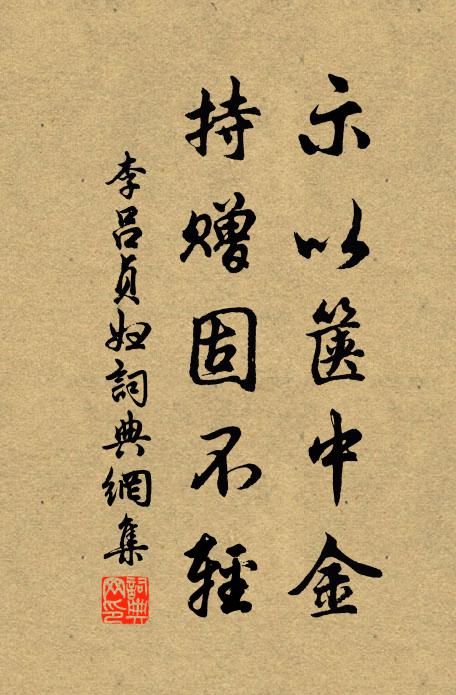 示以篋中金
持贈固不輕
李呂貞妞詞典網集
詞典网印